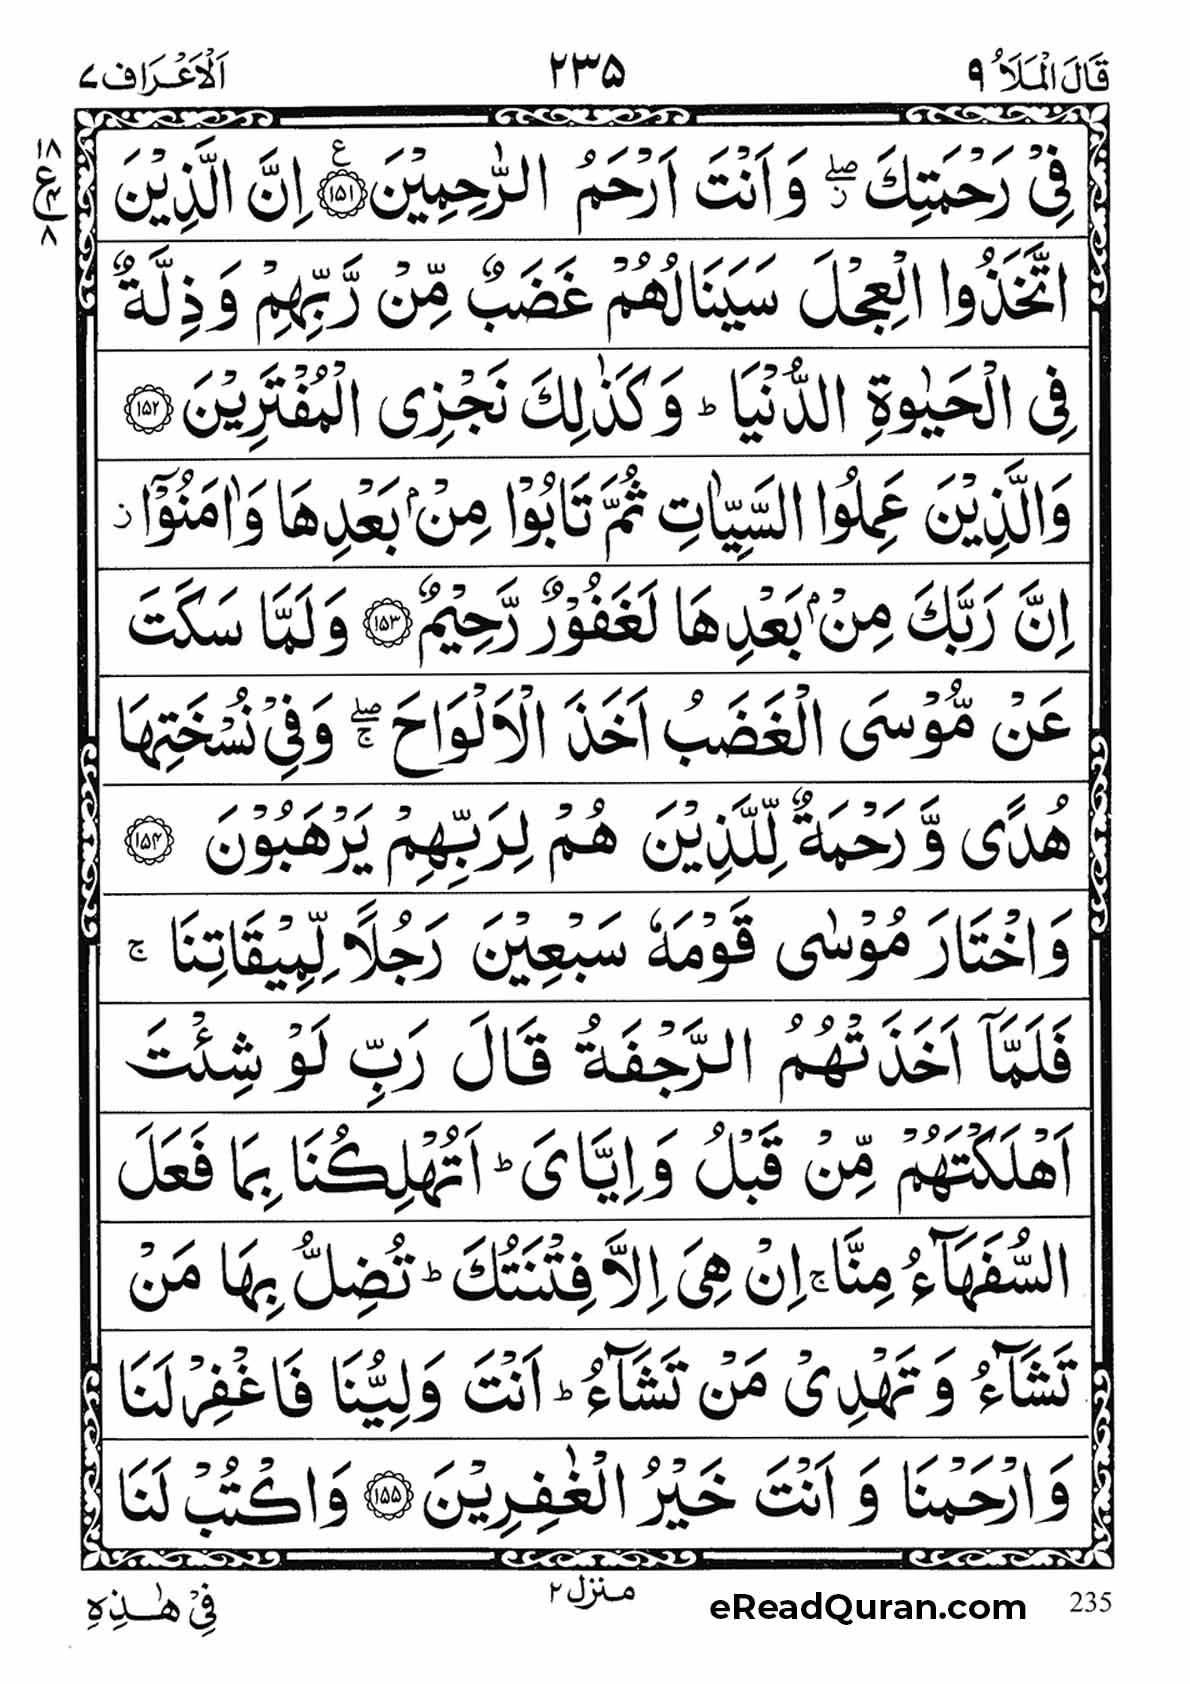 قَالَ الْمَلَاُ ٩
٢٣٥
اَلْاَعْرَاف ٧
فِیْ رَحْمَتِكَ ۖز وَ اَنْتَ اَرْحَمُ الرّٰحِمِیْنَ ﴿۱۵۱﴾ ع اِنَّ الَّذِیْنَ
١٨ ع ٤ ٨
اتَّخَذُوا الْعِجْلَ سَیَنَالُهُمْ غَضَبٌ مِّنْ رَّبِّهِمْ وَ ذِلَّةٌ
فِی الْحَیٰوةِ الدُّنْیَا ؕ وَ كَذٰلِكَ نَجْزِی الْمُفْتَرِیْنَ ﴿۱۵۲﴾
وَ الَّذِیْنَ عَمِلُوا السَّیِّاٰتِ ثُمَّ تَابُوْا مِنْۢ بَعْدِهَا وَ اٰمَنُوْۤا ز
اِنَّ رَبَّكَ مِنْۢ بَعْدِهَا لَغَفُوْرٌ رَّحِیْمٌ ﴿۱۵۳﴾ وَ لَمَّا سَكَتَ
عَنْ مُّوْسَی الْغَضَبُ اَخَذَ الْاَلْوَاحَ ۖۚ وَ فِیْ نُسْخَتِهَا
هُدًی وَّ رَحْمَةٌ لِّلَّذِیْنَ هُمْ لِرَبِّهِمْ یَرْهَبُوْنَ ﴿۱۵۴﴾
وَ اخْتَارَ مُوْسٰی قَوْمَهٗ سَبْعِیْنَ رَجُلًا لِّمِیْقَاتِنَا ۚ
فَلَمَّاۤ اَخَذَتْهُمُ الرَّجْفَةُ قَالَ رَبِّ لَوْ شِئْتَ
اَهْلَكْتَهُمْ مِّنْ قَبْلُ وَ اِیَّایَ ؕ اَتُهْلِكُنَا بِمَا فَعَلَ
السُّفَهَآءُ مِنَّا ۚ اِنْ هِیَ اِلَّا فِتْنَتُكَ ؕ تُضِلُّ بِهَا مَنْ
تَشَآءُ وَ تَهْدِیْ مَنْ تَشَآءُ ؕ اَنْتَ وَلِیُّنَا فَاغْفِرْ لَنَا
وَ ارْحَمْنَا وَ اَنْتَ خَیْرُ الْغٰفِرِیْنَ ﴿۱۵۵﴾ وَ اكْتُبْ لَنَا
فِیْ هٰذِهِ
منزل ٢
eReadQuran.com
235